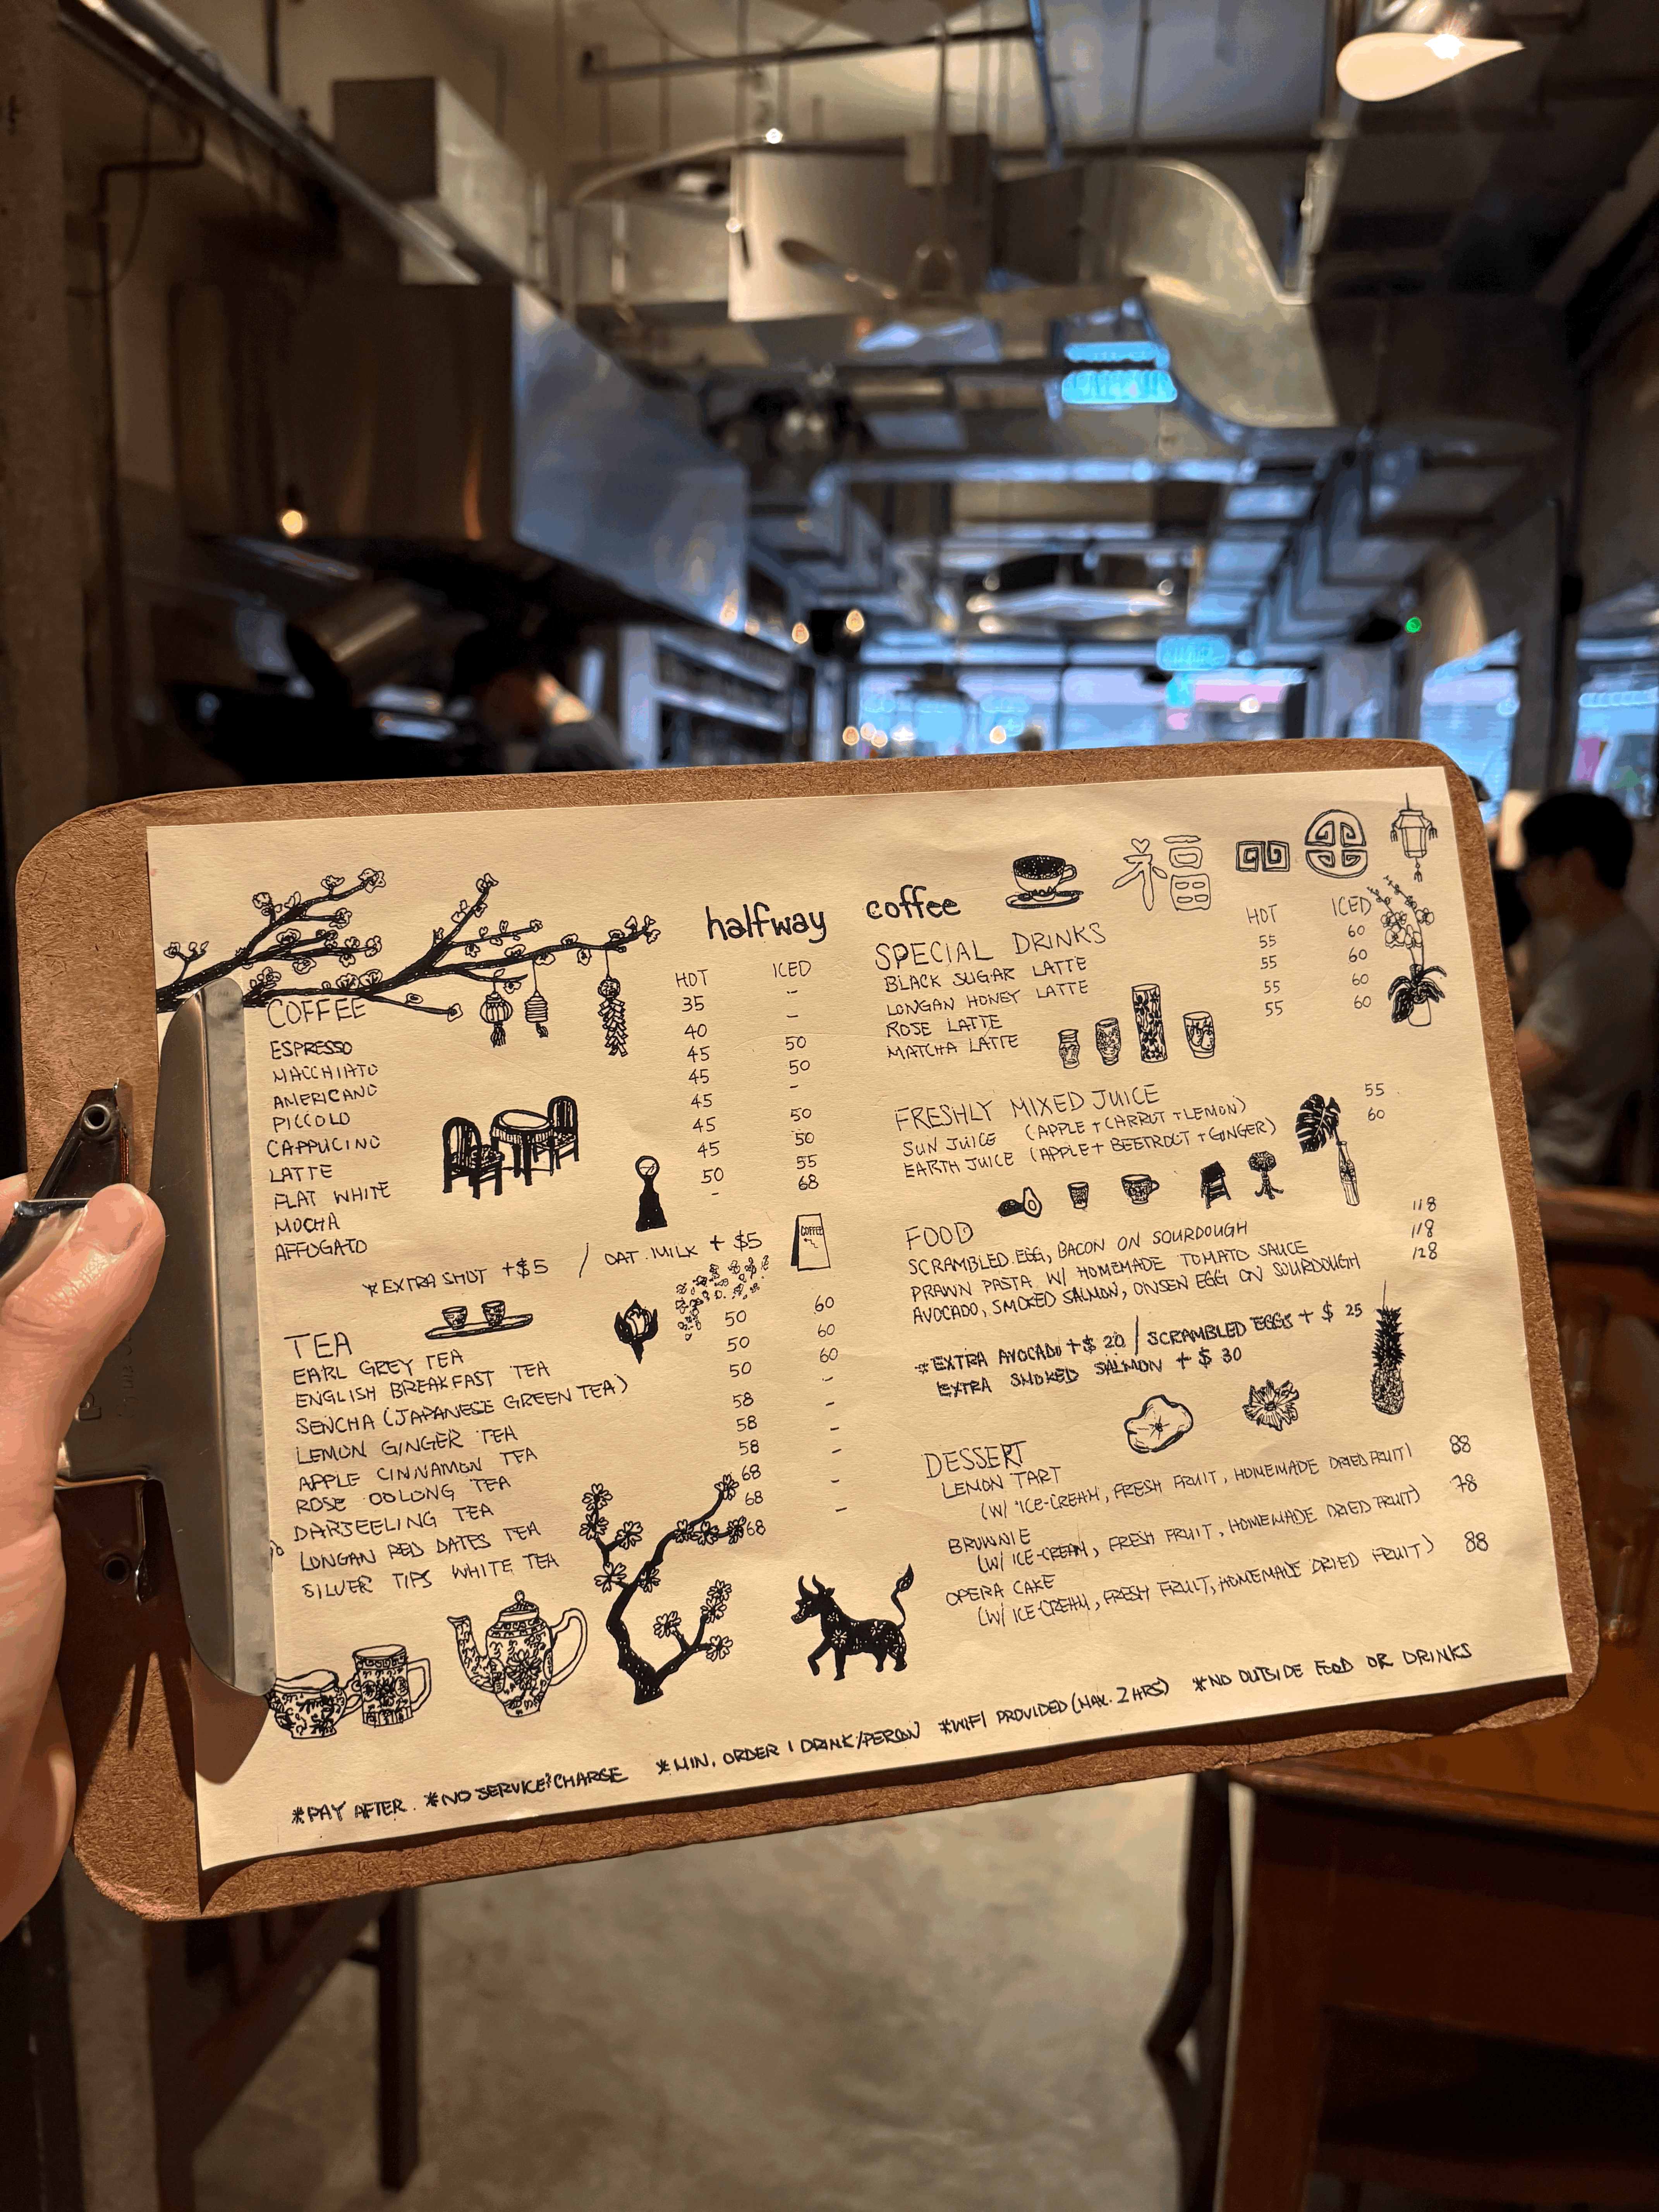 halfway coffee
福
COFFEE HOT ICED
ESPRESSO 35 -
MACCHIATO 40 -
AMERICANO 45 50
PICCOLO 45 50
CAPPUCINO 45 -
LATTE 45 50
FLAT WHITE 45 50
MOCHA 50 55
AFFOGATO - 68
*EXTRA SHOT +$5 / OAT MILK + $5
COFFEE
TEA
EARL GREY TEA 50 60
ENGLISH BREAKFAST TEA 50 60
SENCHA (JAPANESE GREEN TEA) 50 60
LEMON GINGER TEA 58 -
APPLE CINNAMON TEA 58 -
ROSE OOLONG TEA 58 -
DARJEELING TEA 68 -
LONGAN RED DATES TEA 68 -
SILVER TIPS WHITE TEA 68 -
SPECIAL DRINKS HOT ICED
BLACK SUGAR LATTE 55 60
LONGAN HONEY LATTE 55 60
ROSE LATTE 55 60
MATCHA LATTE 55 60
FRESHLY MIXED JUICE
SUN JUICE (APPLE + CARROT + LEMON) 55
EARTH JUICE (APPLE + BEETROOT + GINGER) 60
FOOD
SCRAMBLED EGG, BACON ON SOURDOUGH 118
PRAWN PASTA W/ HOMEMADE TOMATO SAUCE 118
AVOCADO, SMOKED SALMON, ONSEN EGG ON SOURDOUGH 128
*EXTRA AVOCADO +$ 20 / SCRAMBLED EGGS + $ 25
EXTRA SMOKED SALMON + $ 30
DESSERT
LEMON TART 88
(W/ ICE-CREAM, FRESH FRUIT, HOMEMADE DRIED FRUIT)
BROWNIE 78
(W/ ICE-CREAM, FRESH FRUIT, HOMEMADE DRIED FRUIT)
OPERA CAKE 88
(W/ ICE-CREAM, FRESH FRUIT, HOMEMADE DRIED FRUIT)
*PAY AFTER. *NO SERVICE CHARGE *MIN. ORDER 1 DRINK/PERSON *WIFI PROVIDED (MAX. 2 HRS) *NO OUTSIDE FOOD OR DRINKS